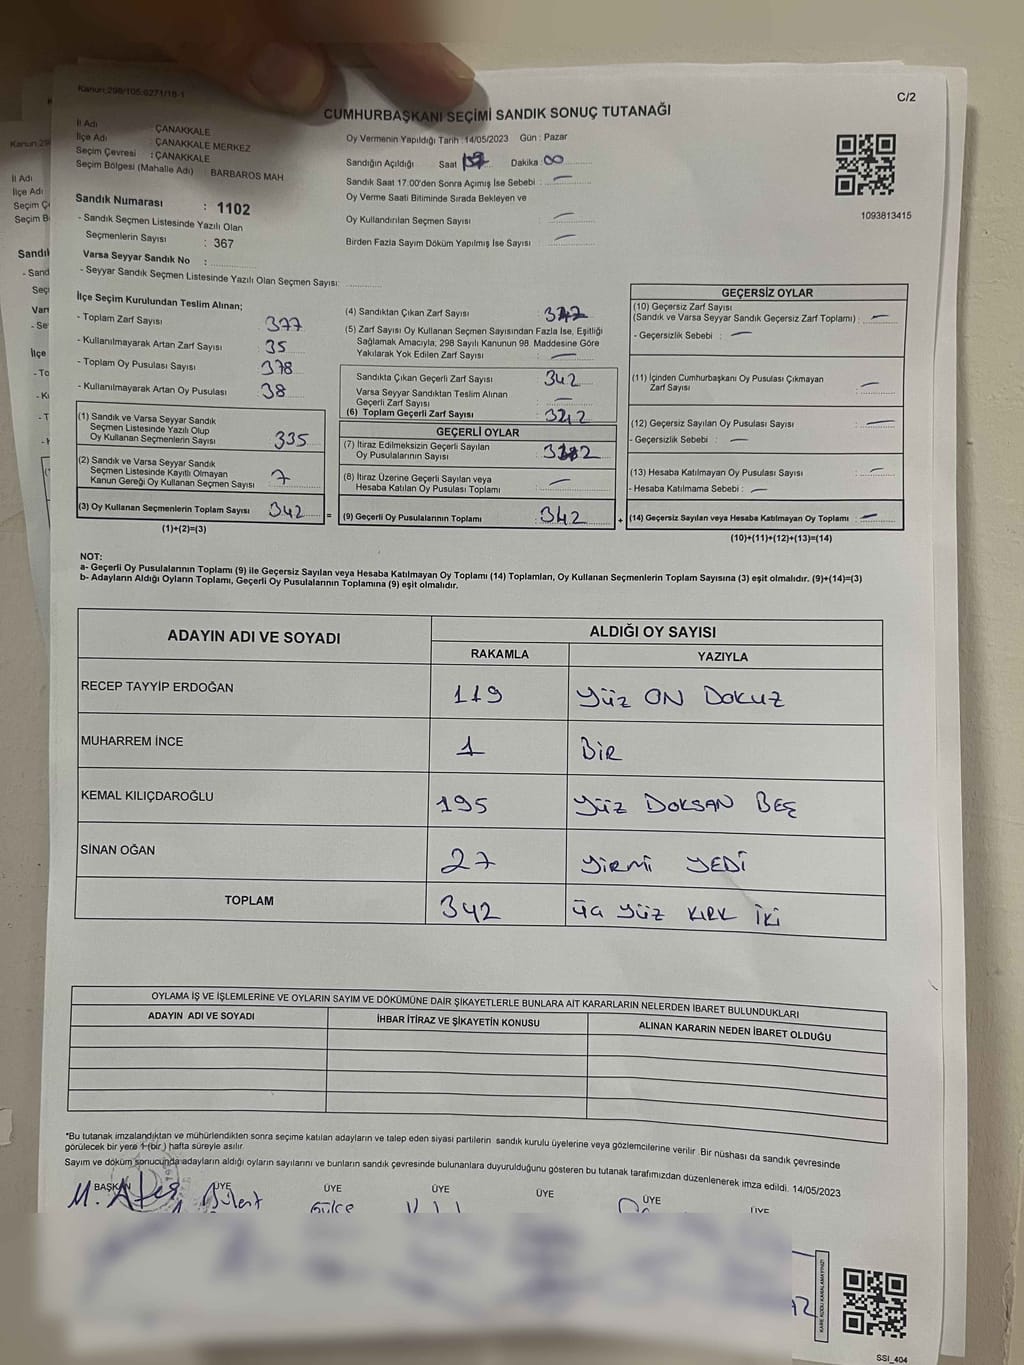 Kanun:298/105,6271/18-1
C/2
CUMHURBAŞKANI SEÇİMİ SANDIK SONUÇ TUTANAĞI
İl Adı ÇANAKKALE
İlçe Adı ÇANAKKALE MERKEZ
Seçim Çevresi : ÇANAKKALE
Seçim Bölgesi (Mahalle Adı) : BARBAROS MAH
Sandık Numarası : 1102
- Sandık Seçmen Listesinde Yazılı Olan
Seçmenlerin Sayısı : 367
Varsa Seyyar Sandık No :
- Seyyar Sandık Seçmen Listesinde Yazılı Olan Seçmen Sayısı:
Oy Vermenin Yapıldığı Tarih :14/05/2023 Gün : Pazar
Sandığın Açıldığı Saat Dakika :00
Sandık Saat 17:00'den Sonra Açımış İse Sebebi : —
Oy Verme Saati Bitiminde Sırada Bekleyen ve
Oy Kullandırılan Seçmen Sayısı : —
Birden Fazla Sayım Döküm Yapılmış İse Sayısı : —
1093813415
İlçe Seçim Kurulundan Teslim Alınan;
- Toplam Zarf Sayısı 377
- Kullanılmayarak Artan Zarf Sayısı : 35
- Toplam Oy Pusulası Sayısı : 378
- Kullanılmayarak Artan Oy Pusulası : 38
(1) Sandık ve Varsa Seyyar Sandık
Seçmen Listesinde Yazılı Olup
Oy Kullanan Seçmenlerin Sayısı : 335
(2) Sandık ve Varsa Seyyar Sandık
Seçmen Listesinde Kayıtlı Olmayan
Kanun Gereği Oy Kullanan Seçmen Sayısı : 7
(3) Oy Kullanan Seçmenlerin Toplam Sayısı : 342 =
(1)+(2)=(3)
(4) Sandıktan Çıkan Zarf Sayısı : 342
(5) Zarf Sayısı Oy Kullanan Seçmen Sayısından Fazla İse, Eşitliği
Sağlamak Amacıyla, 298 Sayılı Kanunun 98. Maddesine Göre
Yakılarak Yok Edilen Zarf Sayısı : —
Sandıkta Çıkan Geçerli Zarf Sayısı : 342
Varsa Seyyar Sandıktan Teslim Alınan
Geçerli Zarf Sayısı : —
(6) Toplam Geçerli Zarf Sayısı : 342
GEÇERLİ OYLAR
(7) İtiraz Edilmeksizin Geçerli Sayılan
Oy Pusulalarının Sayısı : 342
(8) İtiraz Üzerine Geçerli Sayılan veya
Hesaba Katılan Oy Pusulası Toplamı : —
(9) Geçerli Oy Pusulalarının Toplamı : 342 +
GEÇERSİZ OYLAR
(10) Geçersiz Zarf Sayısı
(Sandık ve Varsa Seyyar Sandık Geçersiz Zarf Toplamı) : —
- Geçersizlik Sebebi : —
(11) İçinden Cumhurbaşkanı Oy Pusulası Çıkmayan
Zarf Sayısı : —
(12) Geçersiz Sayılan Oy Pusulası Sayısı : —
- Geçersizlik Sebebi : —
(13) Hesaba Katılmayan Oy Pusulası Sayısı : —
- Hesaba Katılmama Sebebi : —
(14) Geçersiz Sayılan veya Hesaba Katılmayan Oy Toplamı : —
(10)+(11)+(12)+(13)=(14)
NOT:
a- Geçerli Oy Pusulalarının Toplamı (9) ile Geçersiz Sayılan veya Hesaba Katılmayan Oy Toplamı (14) Toplamları, Oy Kullanan Seçmenlerin Toplam Sayısına (3) eşit olmalıdır. (9)+(14)=(3)
b- Adayların Aldığı Oyların Toplamı, Geçerli Oy Pusulalarının Toplamına (9) eşit olmalıdır.
ADAYIN ADI VE SOYADI ALDIĞI OY SAYISI
RAKAMLA YAZIYLA
RECEP TAYYİP ERDOĞAN 119 Yüz ON DOKUZ
MUHARREM İNCE 1 BİR
KEMAL KILIÇDAROĞLU 195 Yüz DOKSAN BEŞ
SİNAN OĞAN 27 YİRMİ YEDİ
TOPLAM 342 üç yüz KIRK İKİ
OYLAMA İŞ VE İŞLEMLERİNE VE OYLARIN SAYIM VE DÖKÜMÜNE DAİR ŞİKAYETLERLE BUNLARA AİT KARARLARIN NELERDEN İBARET BULUNDUKLARI
ADAYIN ADI VE SOYADI İHBAR İTİRAZ VE ŞİKAYETİN KONUSU ALINAN KARARIN NEDEN İBARET OLDUĞU
*Bu tutanak imzalandıktan ve mühürlendikten sonra seçime katılan adayların ve talep eden siyasi partilerin sandık kurulu üyelerine veya gözlemcilerine verilir. Bir nüshası da sandık çevresinde
görülecek bir yere 1 (bir) hafta süreyle asılır.
Sayım ve döküm sonucunda adayların aldığı oyların sayılarını ve bunların sandık çevresinde bulunanlara duyurulduğunu gösteren bu tutanak tarafımızdan düzenlenerek imza edildi. 14/05/2023
BAŞKAN ÜYE ÜYE ÜYE ÜYE ÜYE ÜYE
M. Ateş Bülent Gülce
KARE KODU KARALAMAYINIZ!
SSI_404